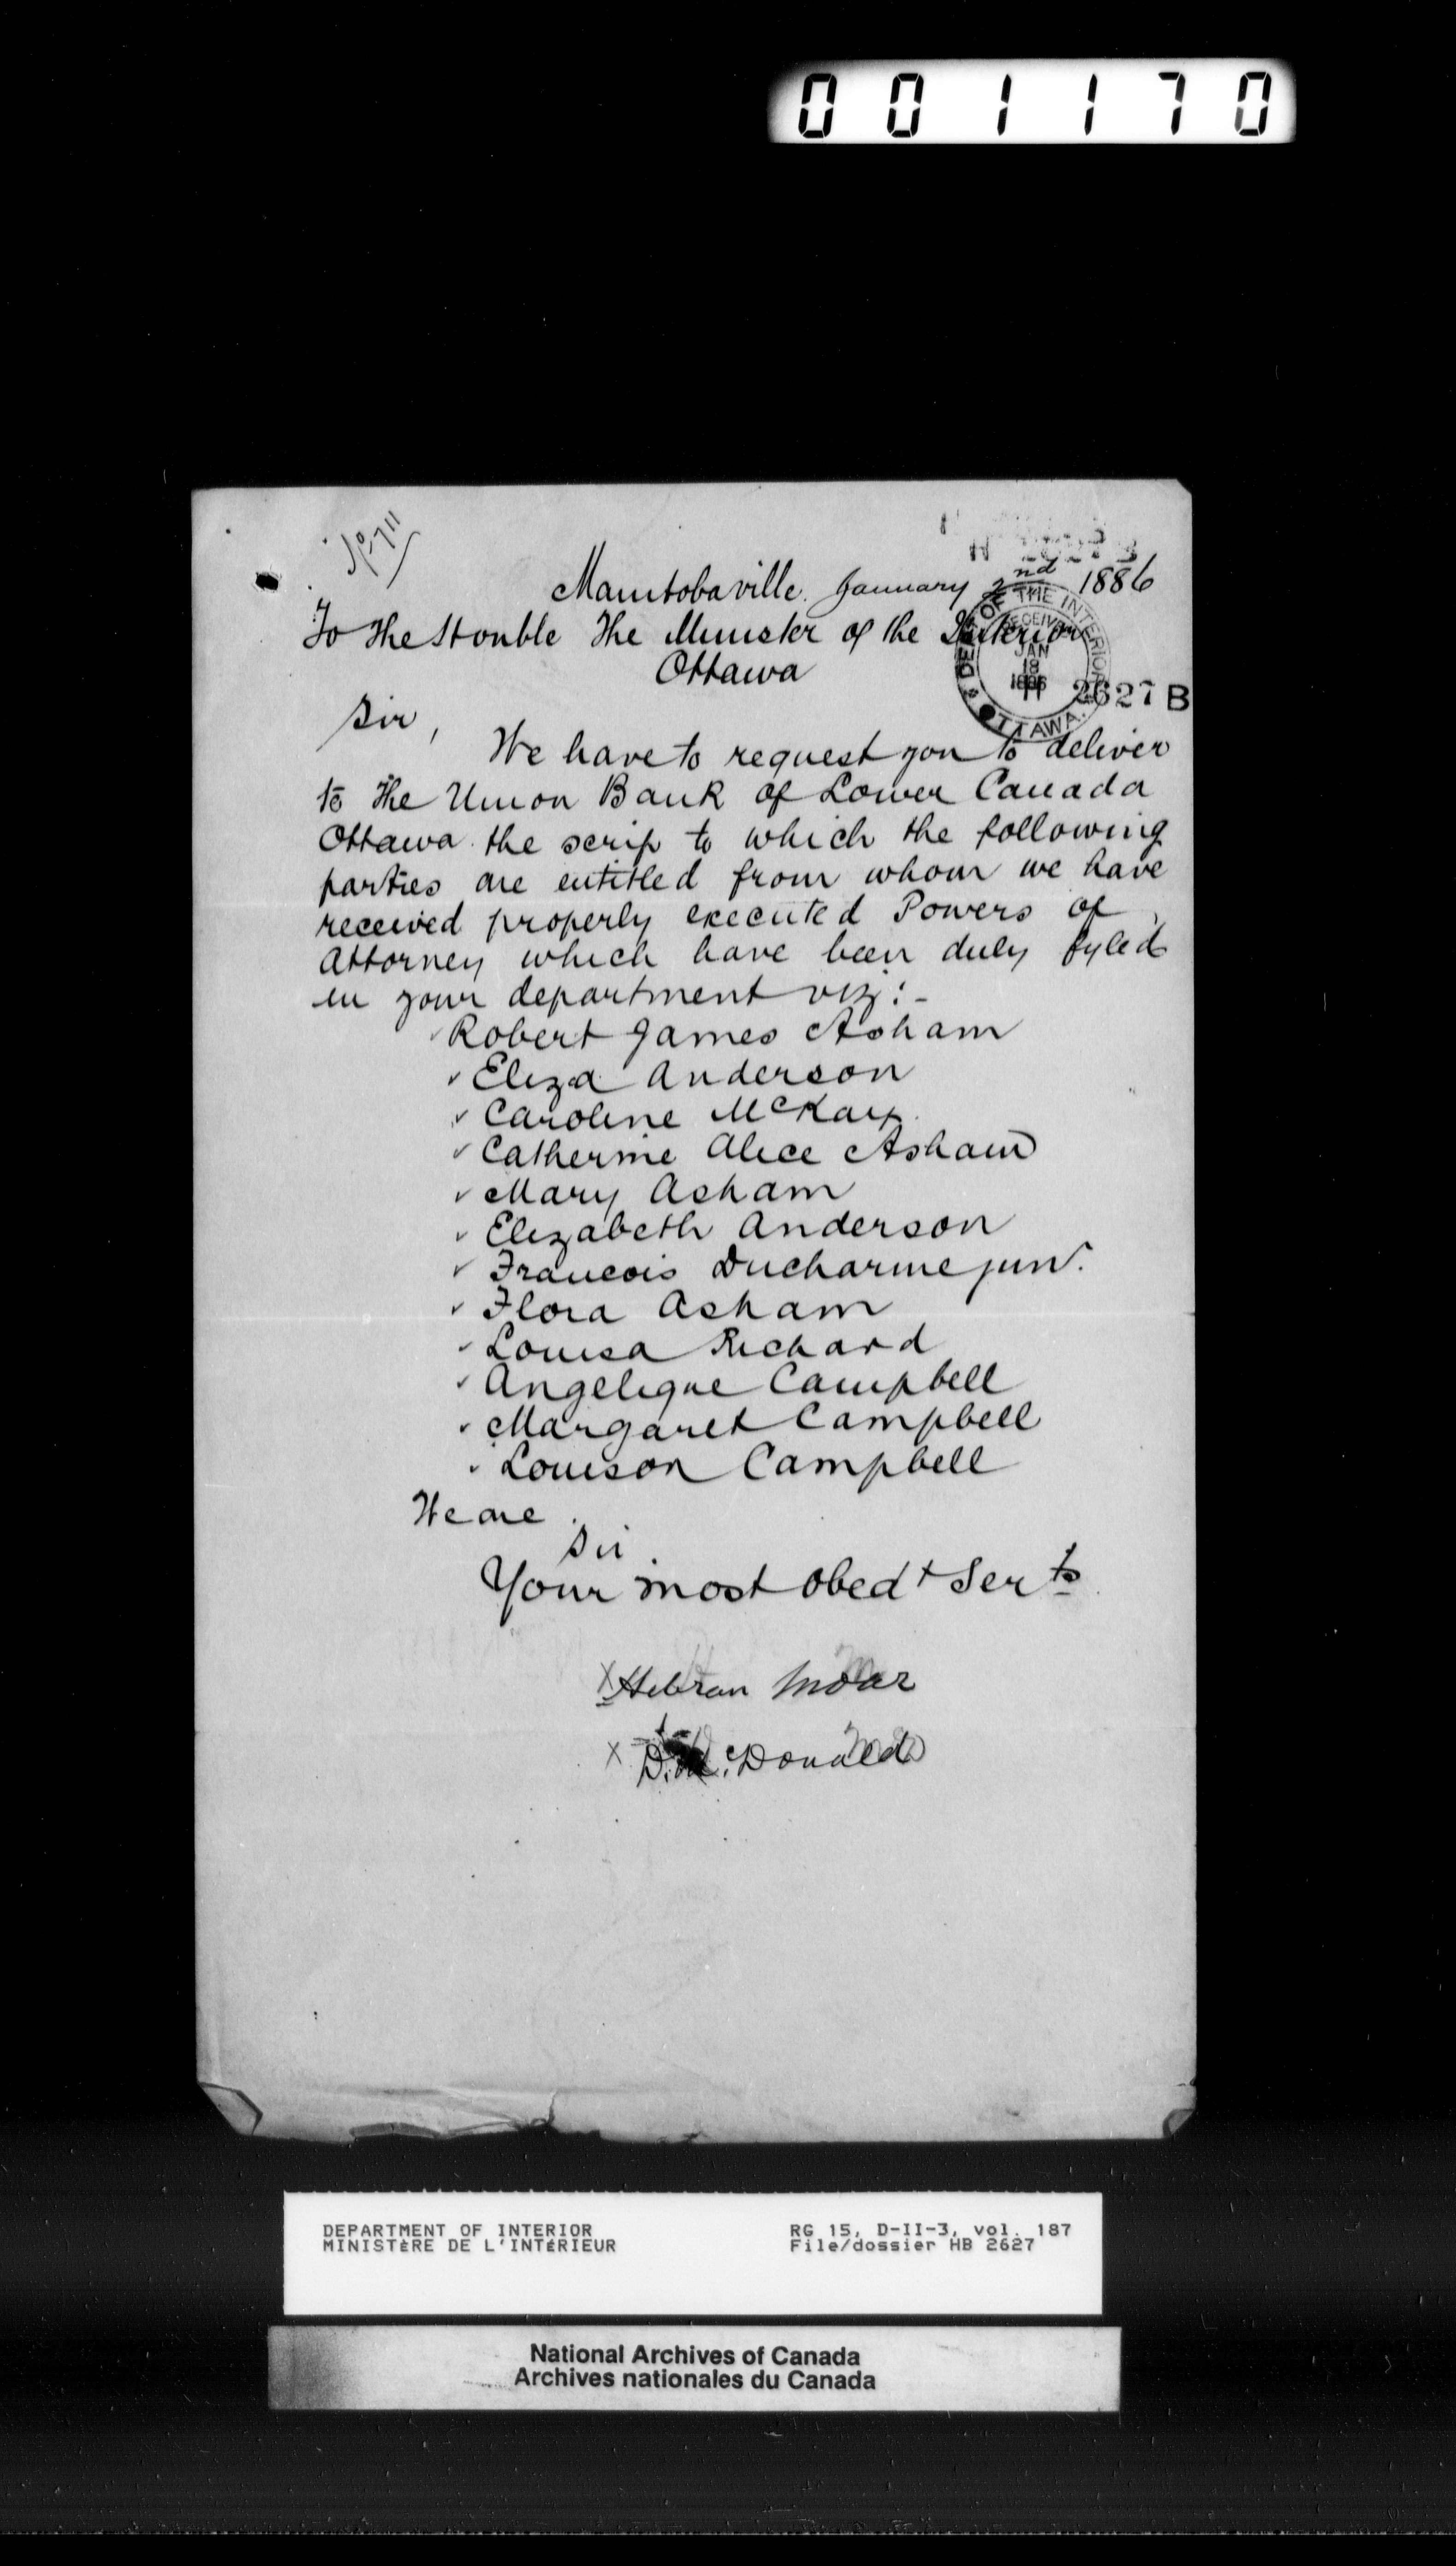 001170
Manitobaville. January 2nd 1886
To The Honble The Minister of the Interior
Ottawa
DEPT OF THE INTERIOR
RECEIVED
JAN
18
1886
OTTAWA.
2627 B
Sir,
We have to request you to deliver
to The Union Bank of Lower Canada
Ottawa the scrip to which the following
parties are entitled from whom we have
received properly executed Powers of
Attorney which have been duly fyled
in your department viz:-
Robert James Asham
Eliza Anderson
Caroline McKay
Catherine Alice Asham
Mary Asham
Elizabeth Anderson
Francois Ducharme junr.
Flora Asham
Louisa Richard
Angelique Campbell
Margaret Campbell
Louison Campbell
We are
Sir
Your most obedt Serts
X Hebron Moar
X D. McDonald
DEPARTMENT OF INTERIOR
MINISTÈRE DE L'INTÉRIEUR
RG 15, D-II-3, vol. 187
File/dossier HB 2627
National Archives of Canada
Archives nationales du Canada